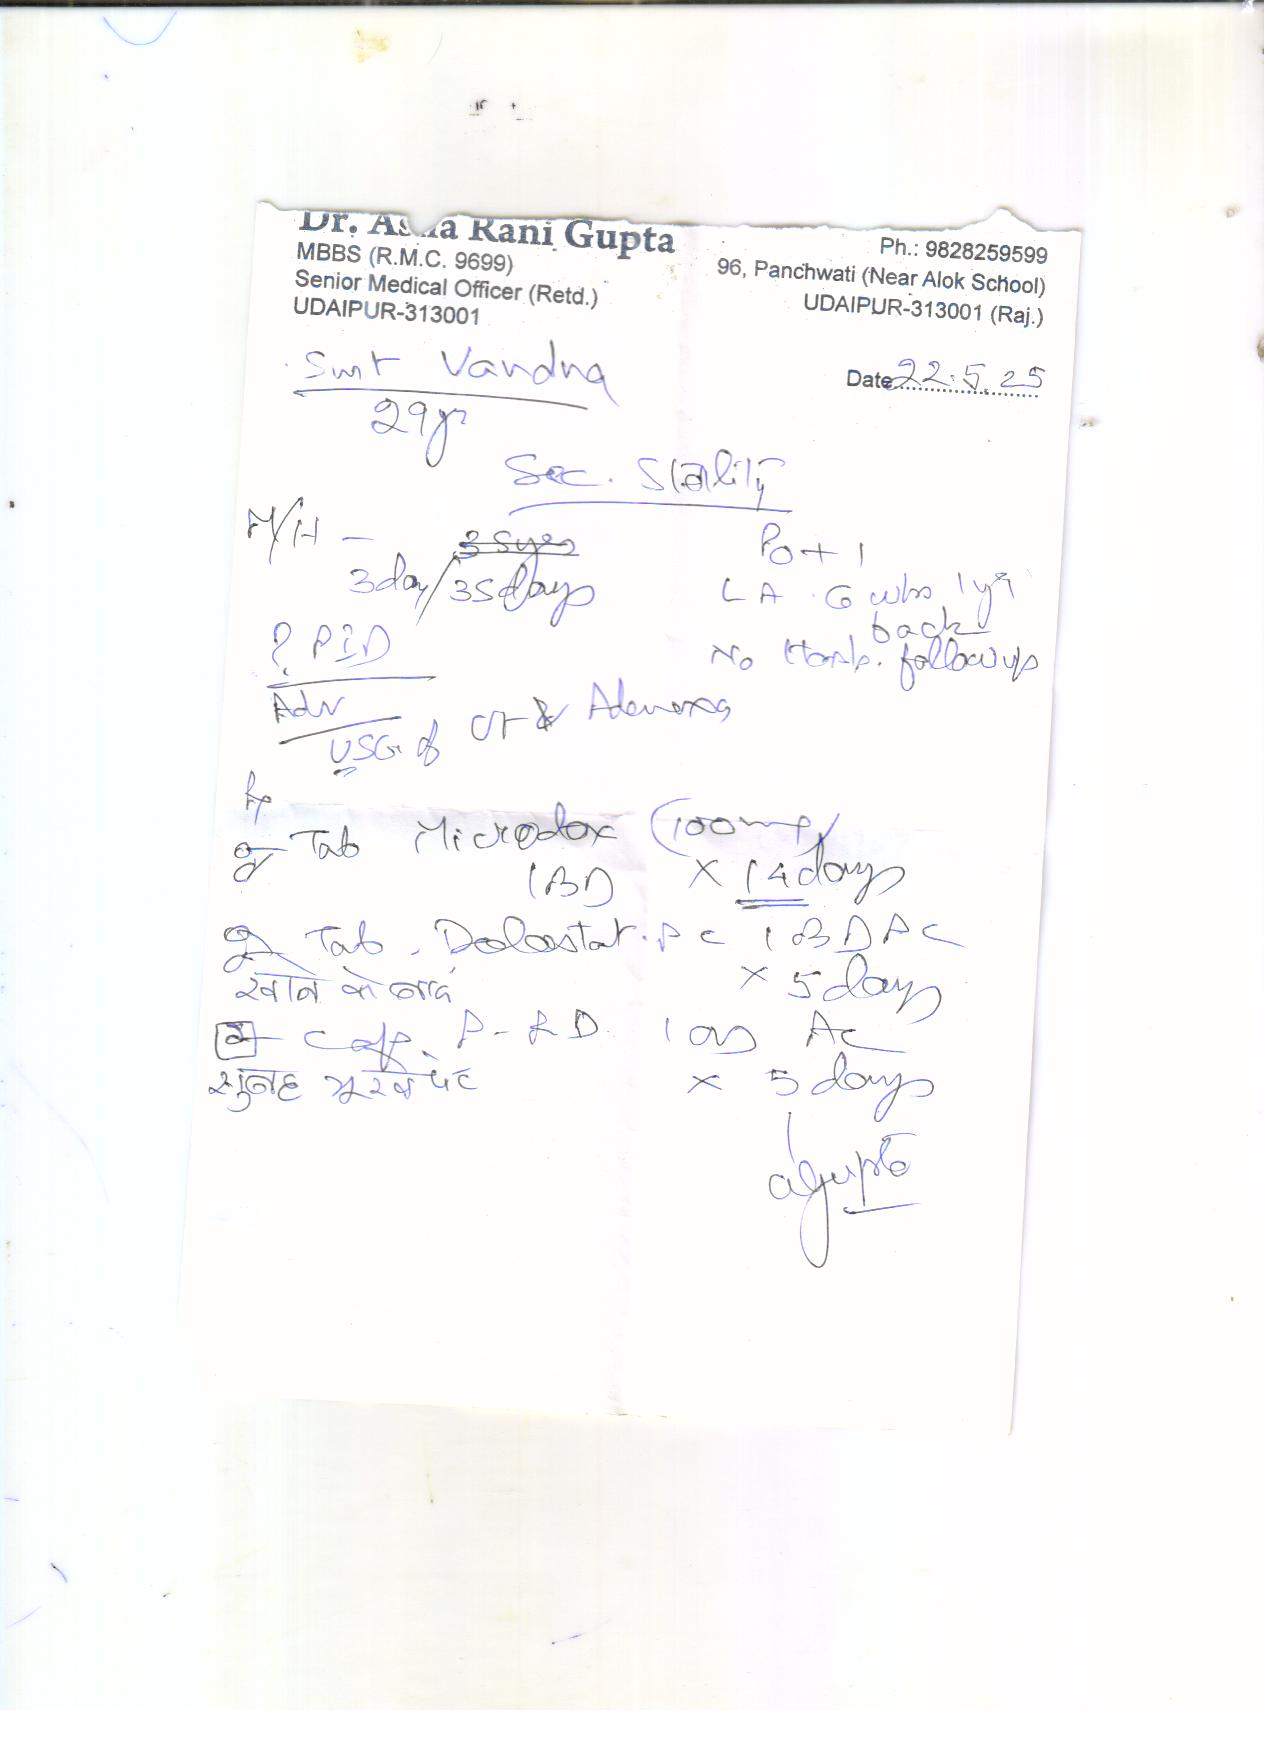 Dr. Asha Rani Gupta
MBBS (R.M.C. 9699)
Senior Medical Officer (Retd.)
UDAIPUR-313001
Ph.: 9828259599
96, Panchwati (Near Alok School)
UDAIPUR-313001 (Raj.)
Smt Vandna
Date 22.5.25
29yr
Sec. Sterility
M/H - 35yes
3day/35days
P0+1
LA 6 wks 1yr
back
No Hosp. followup
? PID
Adv
USG of UT & Adenexa
Rp
1 Tab Microdox (100mg)
1BD x 14days
2 Tab. Dolostat-PC 1 BD PC
खाने के बाद x 5days
3 Cap. P-RD 1 OD AC
सुबह भूखे पेट x 5days
agupta